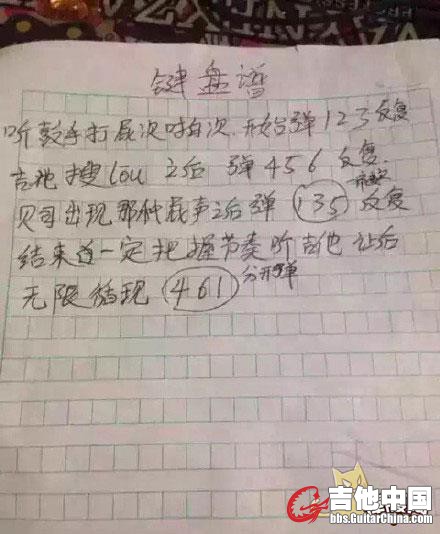 键盘谱
听鼓手打 次 次.开始弹123反复
吉他搜lou之后 弹456反复.
贝司出现那种 声之后弹 135 反复
结束 一定把握节奏听吉他 让后
无限循现 461 分开弹
吉他中国
bbs.GuitarChina.com